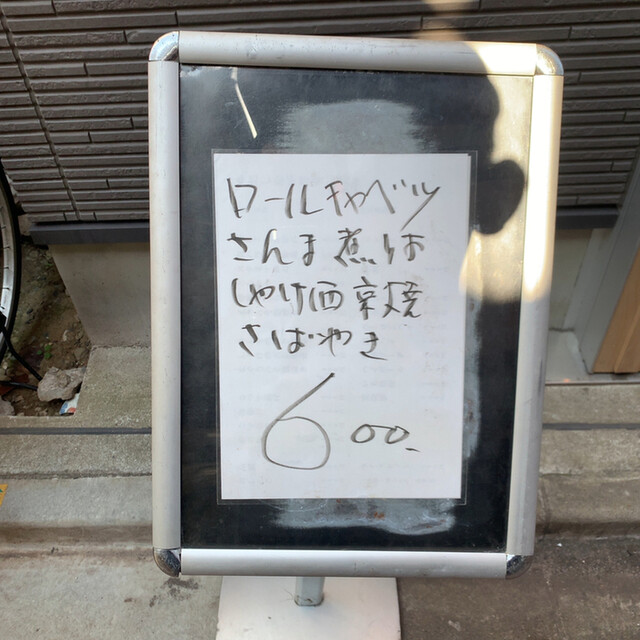 ロールキャベツ
さんま煮は
しゃけ西京焼
さばやき
600.